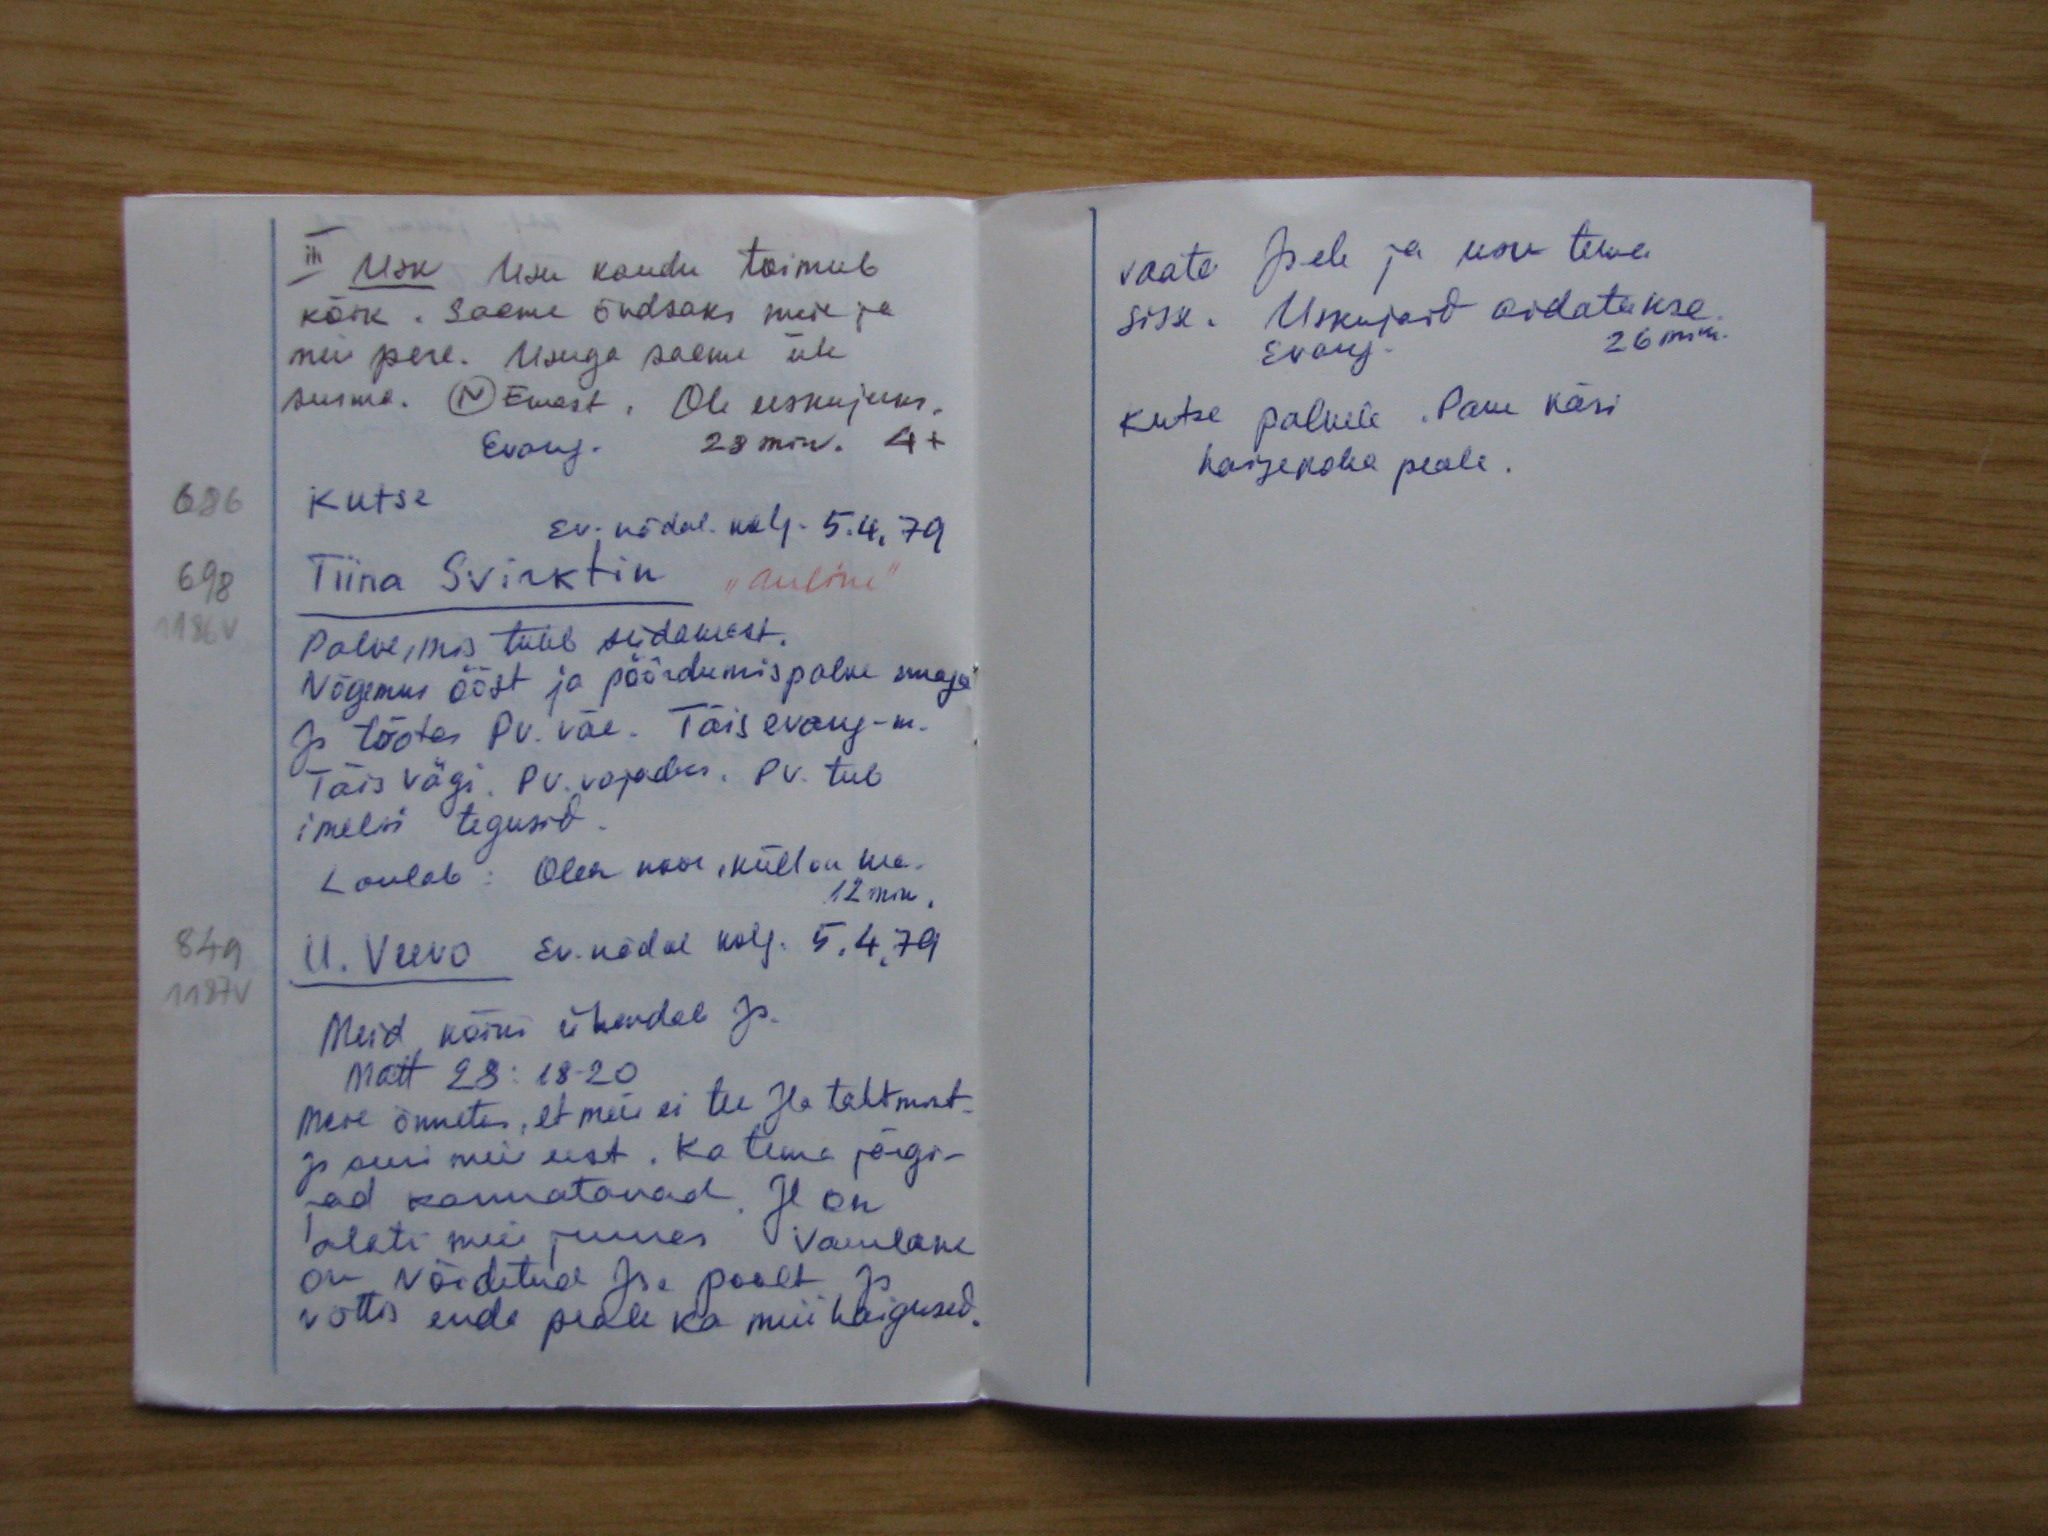 III Usk Usu kaudu toimub
kõik. Saame õndsaks meie ja
meie pere. Usuga saame üle
surma. (N) Emast. Ole uskujuks.
Evang. 28 min. 4+
686 Kutse
Ev. nädal. Kolj. 5.4.79
698 Tiina Svirktin "auline"
1186V
Palve, mis tuleb südamest.
Nägemus ööst ja pöördumispalve
Js töötas PV. väe. Täis evang-m.
Täis vägi. PV. vajadus. PV. tuleb
imelisi tegusid.
Laulab: Olen noor, küll on hea.
12 min.
849 U. Veevo Ev. nädal Kolj. 5.4.79
1187V
Meid kõiki ühendab Js.
Matt 28:18-20
Meie õnnetus, et meie ei tee Jla tahtmist.
Js suri meie eest. Ka tema järgi-
jad kannatavad. Jl on
alati meie juures Vaenlane
on võidetud Jse poolt Js
võttis enda peale ka meie haigused.
vaata Jsele ja usu tema
sisse. Uskujaid aidatakse.
Evang. 26 min.
Kutse palvele. Pane käsi
haigekoha peale.